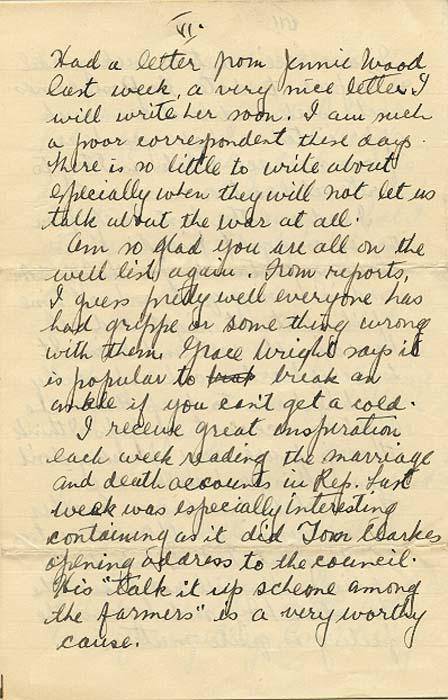 VI.
Had a letter from Jennie Wood
last week, a very nice letter. I
will write her soon. I am such
a poor correspondent these days.
There is so little to write about
especially when they will not let us
talk about the war at all.
Am so glad you are all on the
well list again. From reports,
I guess pretty well everyone has
had grippe or something wrong
with them. Grace Wright says it
is popular to break an
ankle if you can't get a cold.
I receive great inspiration
each week reading the marriage
and death accounts in Rep. Last
week was especially interesting
containing as it did Town Clarkes
opening address to the council.
His "talk it up scheme among
the farmers" is a very worthy
cause.